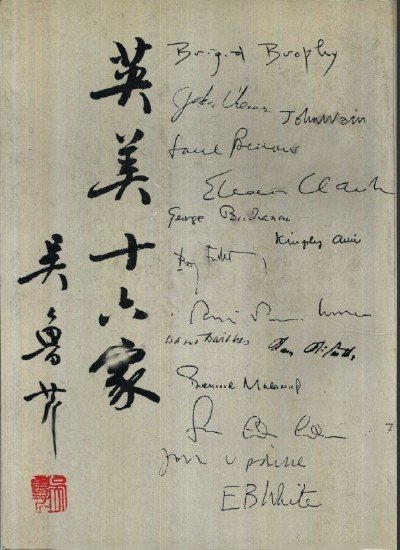 英美十六家
吳魯芹
Brigid Brophy
John Wain
Saul Bellow
Eleanor Clark
George Buchanan
Kingsley Amis
David Daiches
Bernard Malamud
John Updike
EB White